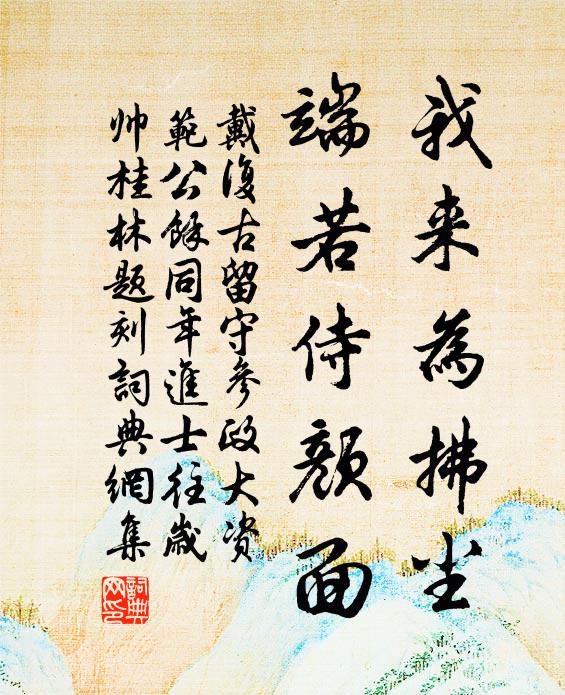 我来為拂尘
端若侍顔面
戴復古留守參政大资
範公餘同年進士往歲
帅桂林題刻詞典網集
詞典网印